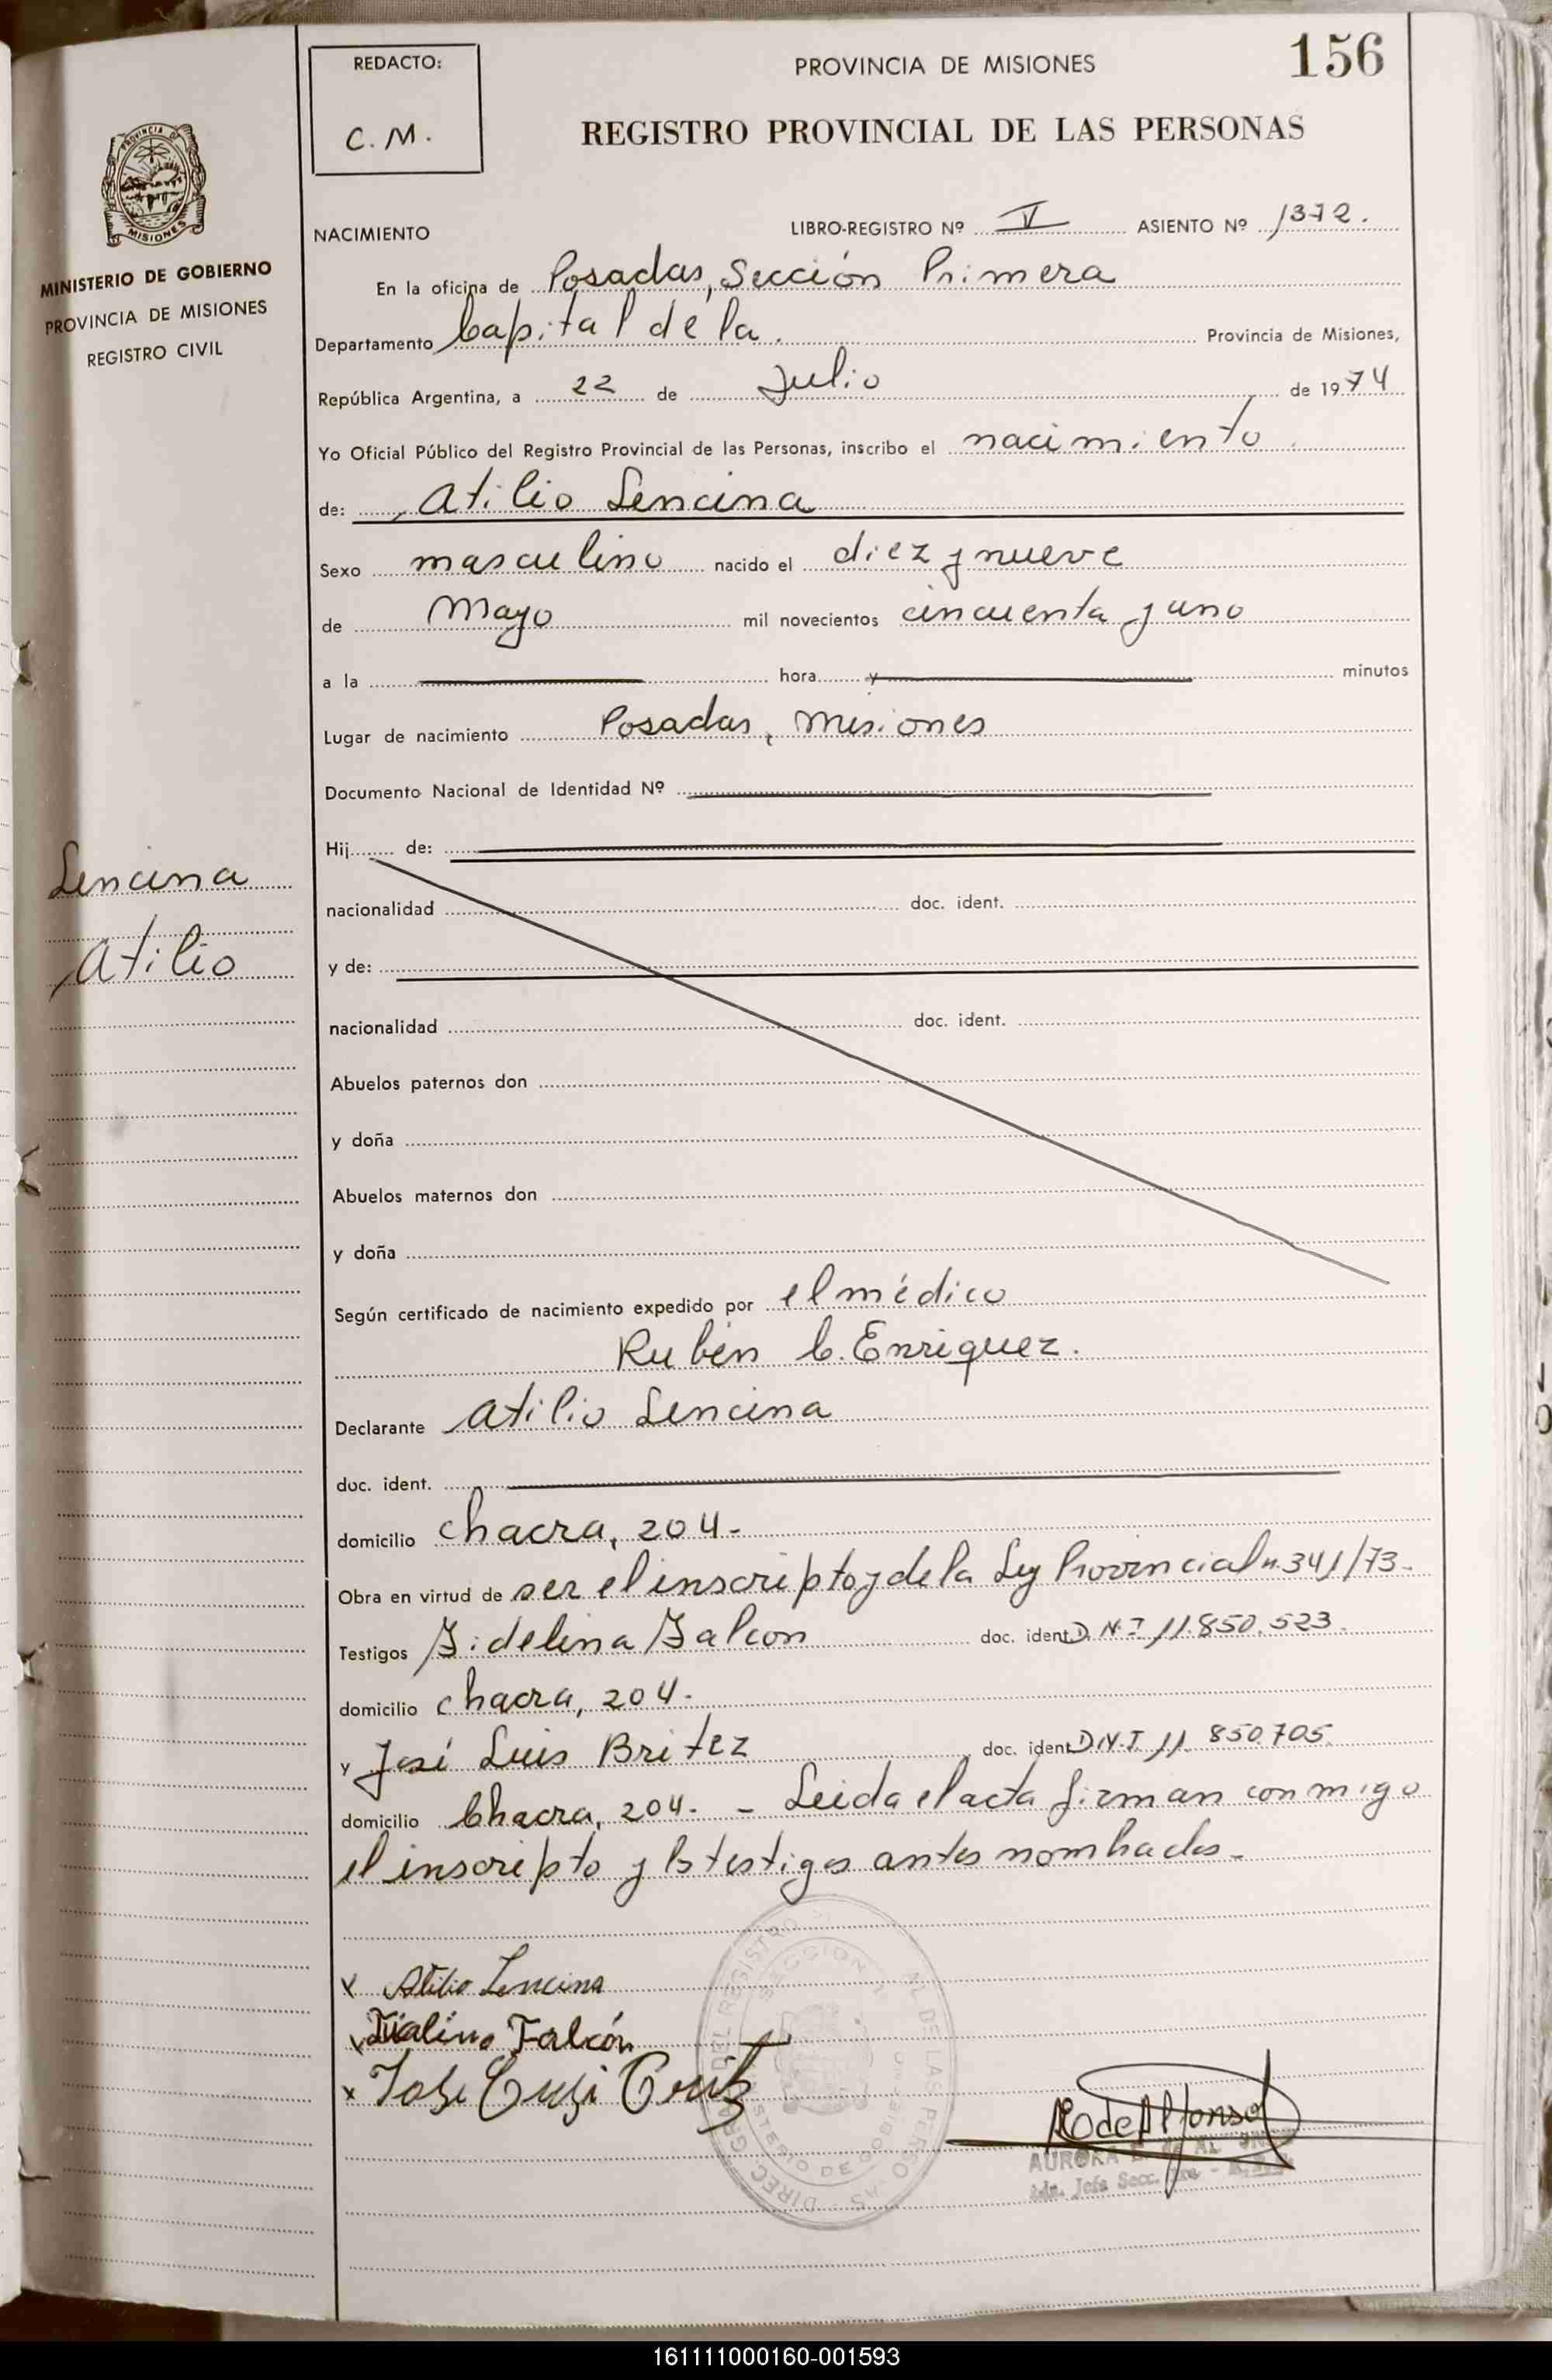 156
REDACTO:
C. M.
PROVINCIA DE MISIONES
REGISTRO PROVINCIAL DE LAS PERSONAS
PROVINCIA DE
MISIONES
MINISTERIO DE GOBIERNO
PROVINCIA DE MISIONES
REGISTRO CIVIL
NACIMIENTO LIBRO-REGISTRO Nº V ASIENTO Nº 1372.
En la oficina de Posadas, Sección Primera
Departamento Capital de la. Provincia de Misiones,
República Argentina, a 22 de Julio de 1974
Yo Oficial Público del Registro Provincial de las Personas, inscribo el nacimiento
de: Atilio Lencina
Sexo masculino nacido el diez y nueve
de Mayo mil novecientos cincuenta y uno
a la hora y minutos
Lugar de nacimiento Posadas, Misiones
Documento Nacional de Identidad Nº
Hij de:
Lencina
nacionalidad doc. ident.
Atilio
y de:
nacionalidad doc. ident.
Abuelos paternos don
y doña
Abuelos maternos don
y doña
Según certificado de nacimiento expedido por el médico
Rubén C. Enriquez.
Declarante Atilio Lencina
doc. ident.
domicilio chacra, 204-
Obra en virtud de ser el inscripto y de la Ley Provincial n. 341/73-
Testigos Fidelina Falcon doc. ident D.N.I 11.850.523.
domicilio chacra, 204.
y José Luis Britez doc. ident D.N.I 11.850.705.
domicilio Chacra, 204. - Leida el acta firman conmigo
el inscripto y los testigos antes nombrados-
x Atilio Lencina
x Falcón
x Jose
RodeAlfonso
AURORA
161111000160-001593